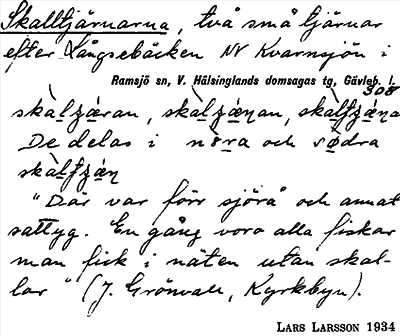 Skalltjärnarna, två små tjärnar
efter Långsebäcken NV Kvarnsjön i
Ramsjö sn, V. Hälsinglands domsagas tg, Gävleb. l.
308
De delas i nöra och södra
"Där var förr sjörå och annat
sattyg. En gång voro alla fiskar
man fick i näten utan skal-
lar" (J. Grönvall, Kyrkbyn).
LARS LARSSON 1934